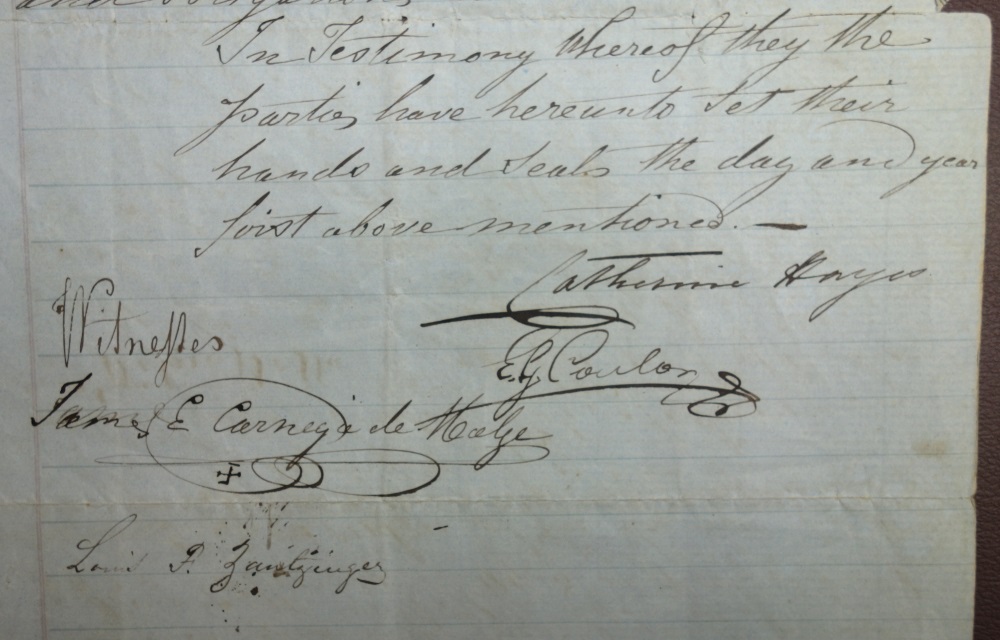 and
In Testimony whereof they the
parties have hereunto Set their
hands and Seals the day and year
first above mentioned. —
Catherine Hayes
Witnesses
E.G. Coulon
James E Carnegie de
Louis P. Zantzinger